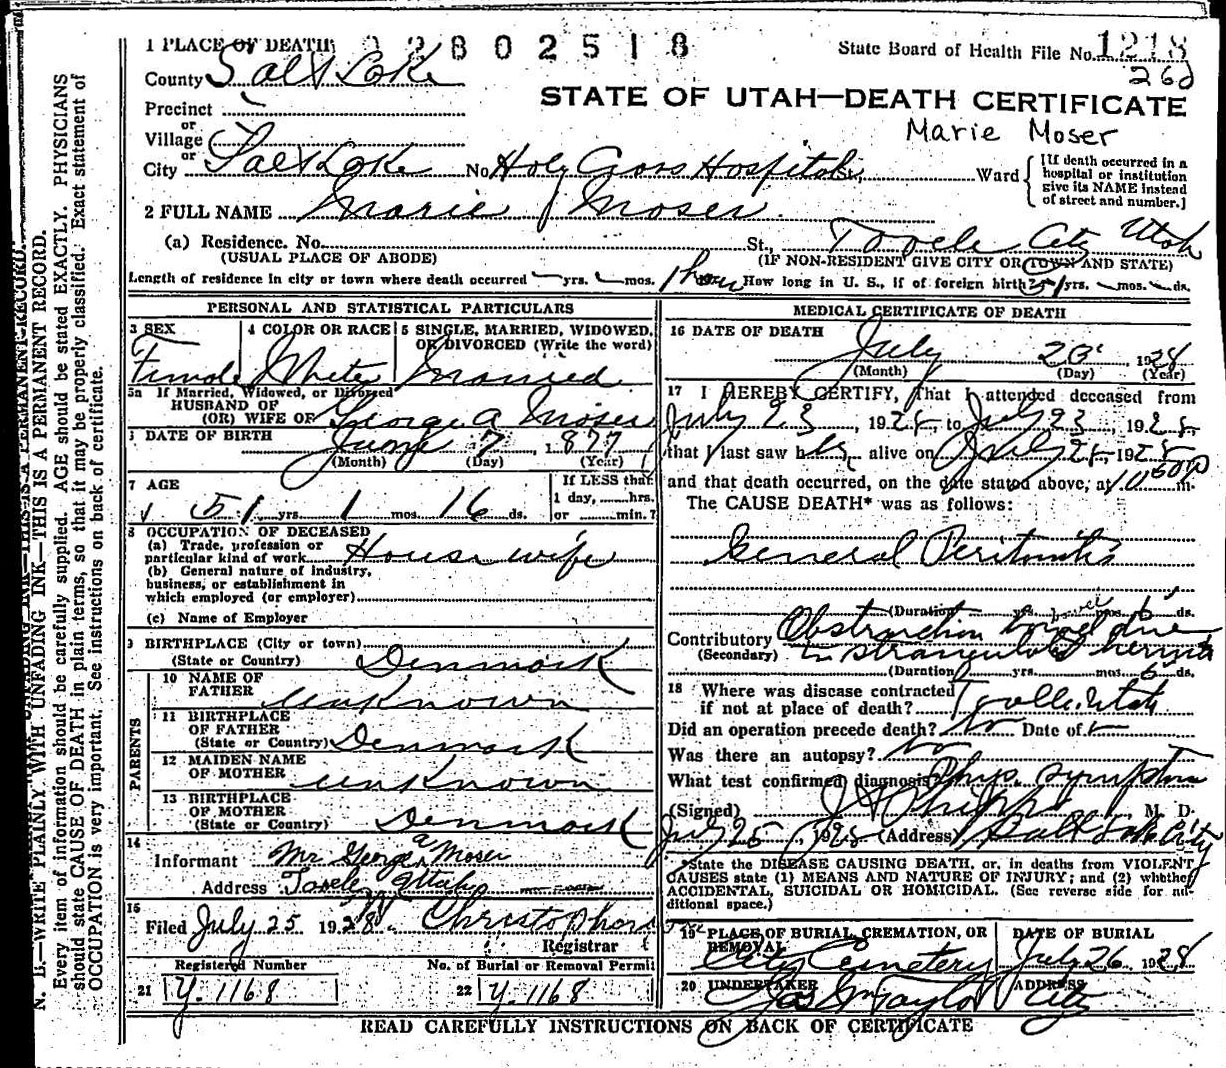 1 PLACE OF DEATH 2802518 State Board of Health File No. 1218
County Salt Lake 26d
STATE OF UTAH—DEATH CERTIFICATE
Precinct
Marie Moser
or
Village
or
City Salt Lake No. Holy Cross Hospital St., Ward
[If death occurred in a hospital or institution give its NAME instead of street and number.]
2 FULL NAME Marie Moser
(a) Residence. No. St., Tooele City Utah
(USUAL PLACE OF ABODE) (IF NON-RESIDENT GIVE CITY OR TOWN AND STATE)
Length of residence in city or town where death occurred yrs. mos. 1 hour How long in U. S., if of foreign birth? 51 yrs. mos. ds.
PERSONAL AND STATISTICAL PARTICULARS
3 SEX
Female
4 COLOR OR RACE
White
5 SINGLE, MARRIED, WIDOWED, OR DIVORCED (Write the word)
Married
5a If Married, Widowed, or Divorced
HUSBAND OF
(OR) WIFE OF George A Moser
6 DATE OF BIRTH June 7, 1877
(Month) (Day) (Year)
7 AGE
51 yrs. 1 mos. 16 ds.
If LESS than
1 day, hrs.
or min.?
8 OCCUPATION OF DECEASED
(a) Trade, profession or
particular kind of work House wife
(b) General nature of industry,
business, or establishment in
which employed (or employer)
(c) Name of Employer
9 BIRTHPLACE (City or town)
(State or Country) Denmark
PARENTS
10 NAME OF
FATHER unknown
11 BIRTHPLACE
OF FATHER
(State or Country) Denmark
12 MAIDEN NAME
OF MOTHER unknown
13 BIRTHPLACE
OF MOTHER
(State or Country) Denmark
14
Informant Mr George A Moser
Address Tooele, Utah
15
Filed July 25 1928.
Registrar
Registered Number
21 Y-1168
No. of Burial or Removal Permit
22 Y-1168
MEDICAL CERTIFICATE OF DEATH
16 DATE OF DEATH
July 1928
(Month) (Day) (Year)
17 I HEREBY CERTIFY, That I attended deceased from
July 23, 1928 to July 23, 1928
that I last saw her alive on July 1928
and that death occurred, on the date stated above, at m.
The CAUSE DEATH* was as follows:
General Peritonitis
(Duration) yrs. mos. 6 ds.
Contributory Obstruction bowel due
(Secondary) to strangulated hernia
(Duration) yrs. mos. 6 ds.
18 Where was disease contracted
if not at place of death? Tooele Utah
Did an operation precede death? No Date of
Was there an autopsy? No
What test confirmed diagnosis? Phys. symptom
(Signed) M. D.
July 25, 1928 (Address) Salt Lake City
*State the DISEASE CAUSING DEATH, or, in deaths from VIOLENT
CAUSES state (1) MEANS AND NATURE OF INJURY; and (2) whether
ACCIDENTAL, SUICIDAL OR HOMICIDAL. (See reverse side for additional space.)
19 PLACE OF BURIAL, CREMATION, OR REMOVAL
City Cemetery
DATE OF BURIAL
July 26 1928
20 UNDERTAKER
Jas Taylor
ADDRESS
City
READ CAREFULLY INSTRUCTIONS ON BACK OF CERTIFICATE
N. B.—WRITE PLAINLY, WITH UNFADING INK—THIS IS A PERMANENT RECORD.
Every item of information should be carefully supplied. AGE should be stated EXACTLY. PHYSICIANS
should state CAUSE OF DEATH in plain terms, so that it may be properly classified. Exact statement of
OCCUPATION is very important. See instructions on back of certificate.